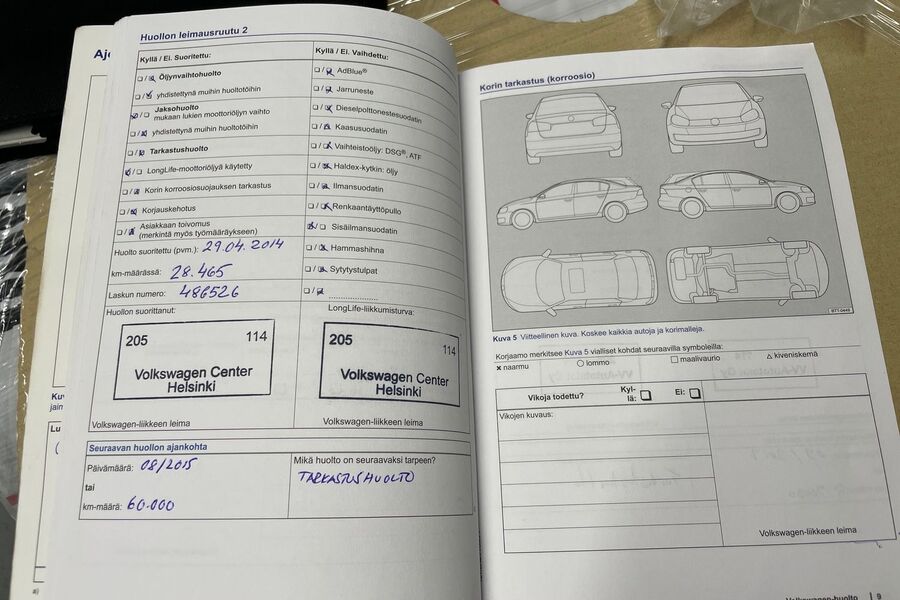 Huollon leimausruutu 2
Kyllä / Ei. Suoritettu:
Öljynvaihtohuolto
yhdistettynä muihin huoltotöihin
Jaksohuolto
mukaan lukien moottoriöljyn vaihto
yhdistettynä muihin huoltotöihin
Tarkastushuolto
LongLife-moottoriöljyä käytetty
Korin korroosiosuojauksen tarkastus
Korjauskehotus
Asiakkaan toivomus
(merkintä myös työmääräykseen)
Huolto suoritettu (pvm.): 29.04.2014
km-määrässä: 28.465
Laskun numero: 486526
Huollon suorittanut:
205 114
Volkswagen Center
Helsinki
Volkswagen-liikkeen leima
Kyllä / Ei. Vaihdettu:
AdBlue®
Jarruneste
Dieselpolttonestesuodatin
Kaasusuodatin
Vaihteistoöljy: DSG®, ATF
Haldex-kytkin: öljy
Ilmansuodatin
Renkaantäyttöpullo
Sisäilmansuodatin
Hammashihna
Sytytystulpat
LongLife-liikkumisturva:
205 114
Volkswagen Center
Helsinki
Volkswagen-liikkeen leima
Seuraavan huollon ajankohta
Päivämäärä: 08/2015
tai
km-määrä: 60.000
Mikä huolto on seuraavaksi tarpeen?
TARKASTUSHUOLTO
Korin tarkastus (korroosio)
B71-0449
Kuva 5 Viitteellinen kuva. Koskee kaikkia autoja ja korimalleja.
Korjaamo merkitsee Kuva 5 vialliset kohdat seuraavilla symboleilla:
naarmu lommo maalivaurio kiveniskemä
Vikoja todettu? Kyl-
lä: Ei:
Vikojen kuvaus:
Volkswagen-liikkeen leima
Volkswagen-huolto 9